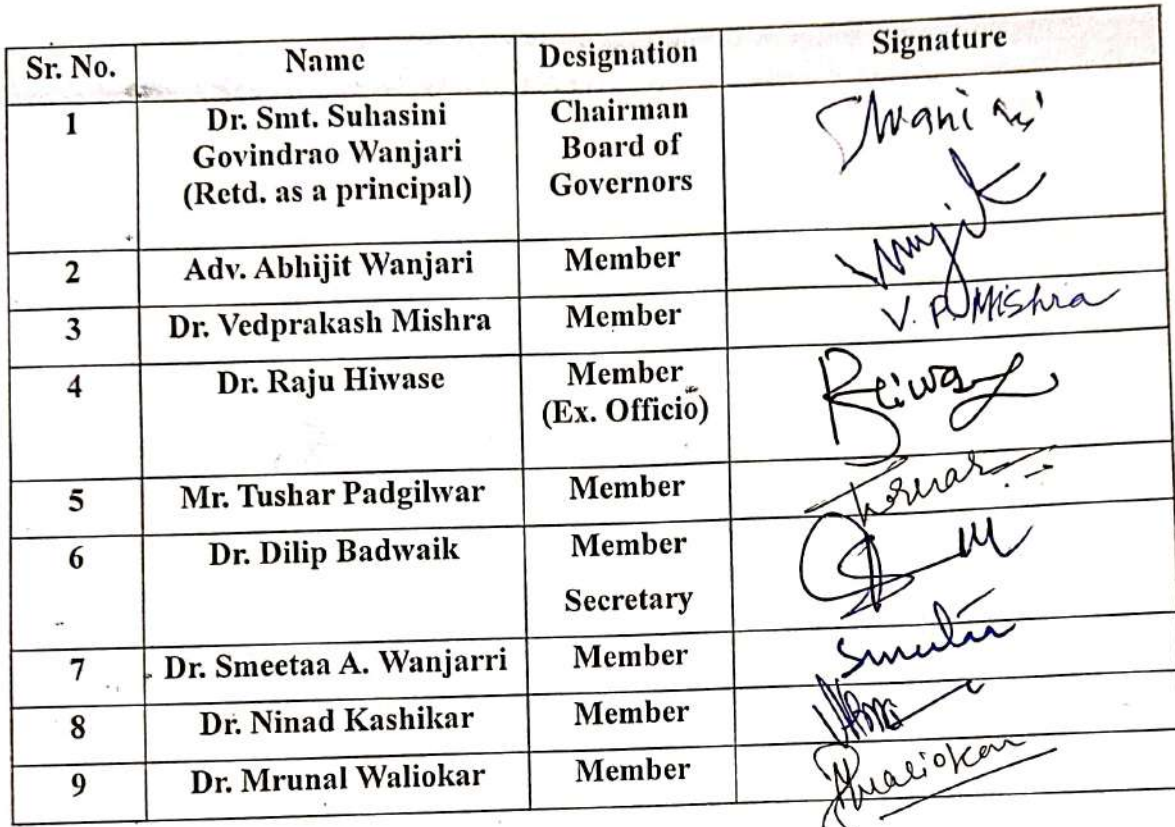 Sr. No. Name Designation Signature
1 Dr. Smt. Suhasini Chairman
Govindrao Wanjari Board of
(Retd. as a principal) Governors
2 Adv. Abhijit Wanjari Member
3 Dr. Vedprakash Mishra Member V. P. Mishra
4 Dr. Raju Hiwase Member
(Ex. Officio)
5 Mr. Tushar Padgilwar Member
6 Dr. Dilip Badwaik Member
Secretary
7 Dr. Smeetaa A. Wanjarri Member
8 Dr. Ninad Kashikar Member
9 Dr. Mrunal Waliokar Member